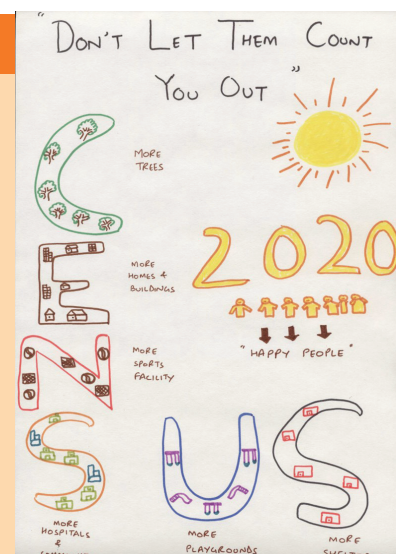 "DON'T LET THEM COUNT
YOU OUT"
C
MORE
TREES
2020
E
MORE
HOMES &
BUILDINGS
"HAPPY PEOPLE"
N
MORE
SPORTS
FACILITY
S
U
S
MORE
HOSPITALS
&
MORE
PLAYGROUNDS
MORE